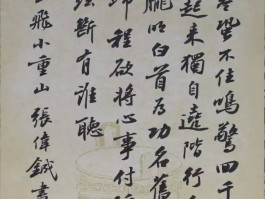 蛩不住鳴驚回千
起來獨自遶階行人
朧明白首為功名舊
歸程欲將心事付
絃斷有誰聽
飛小重山 張偉 書